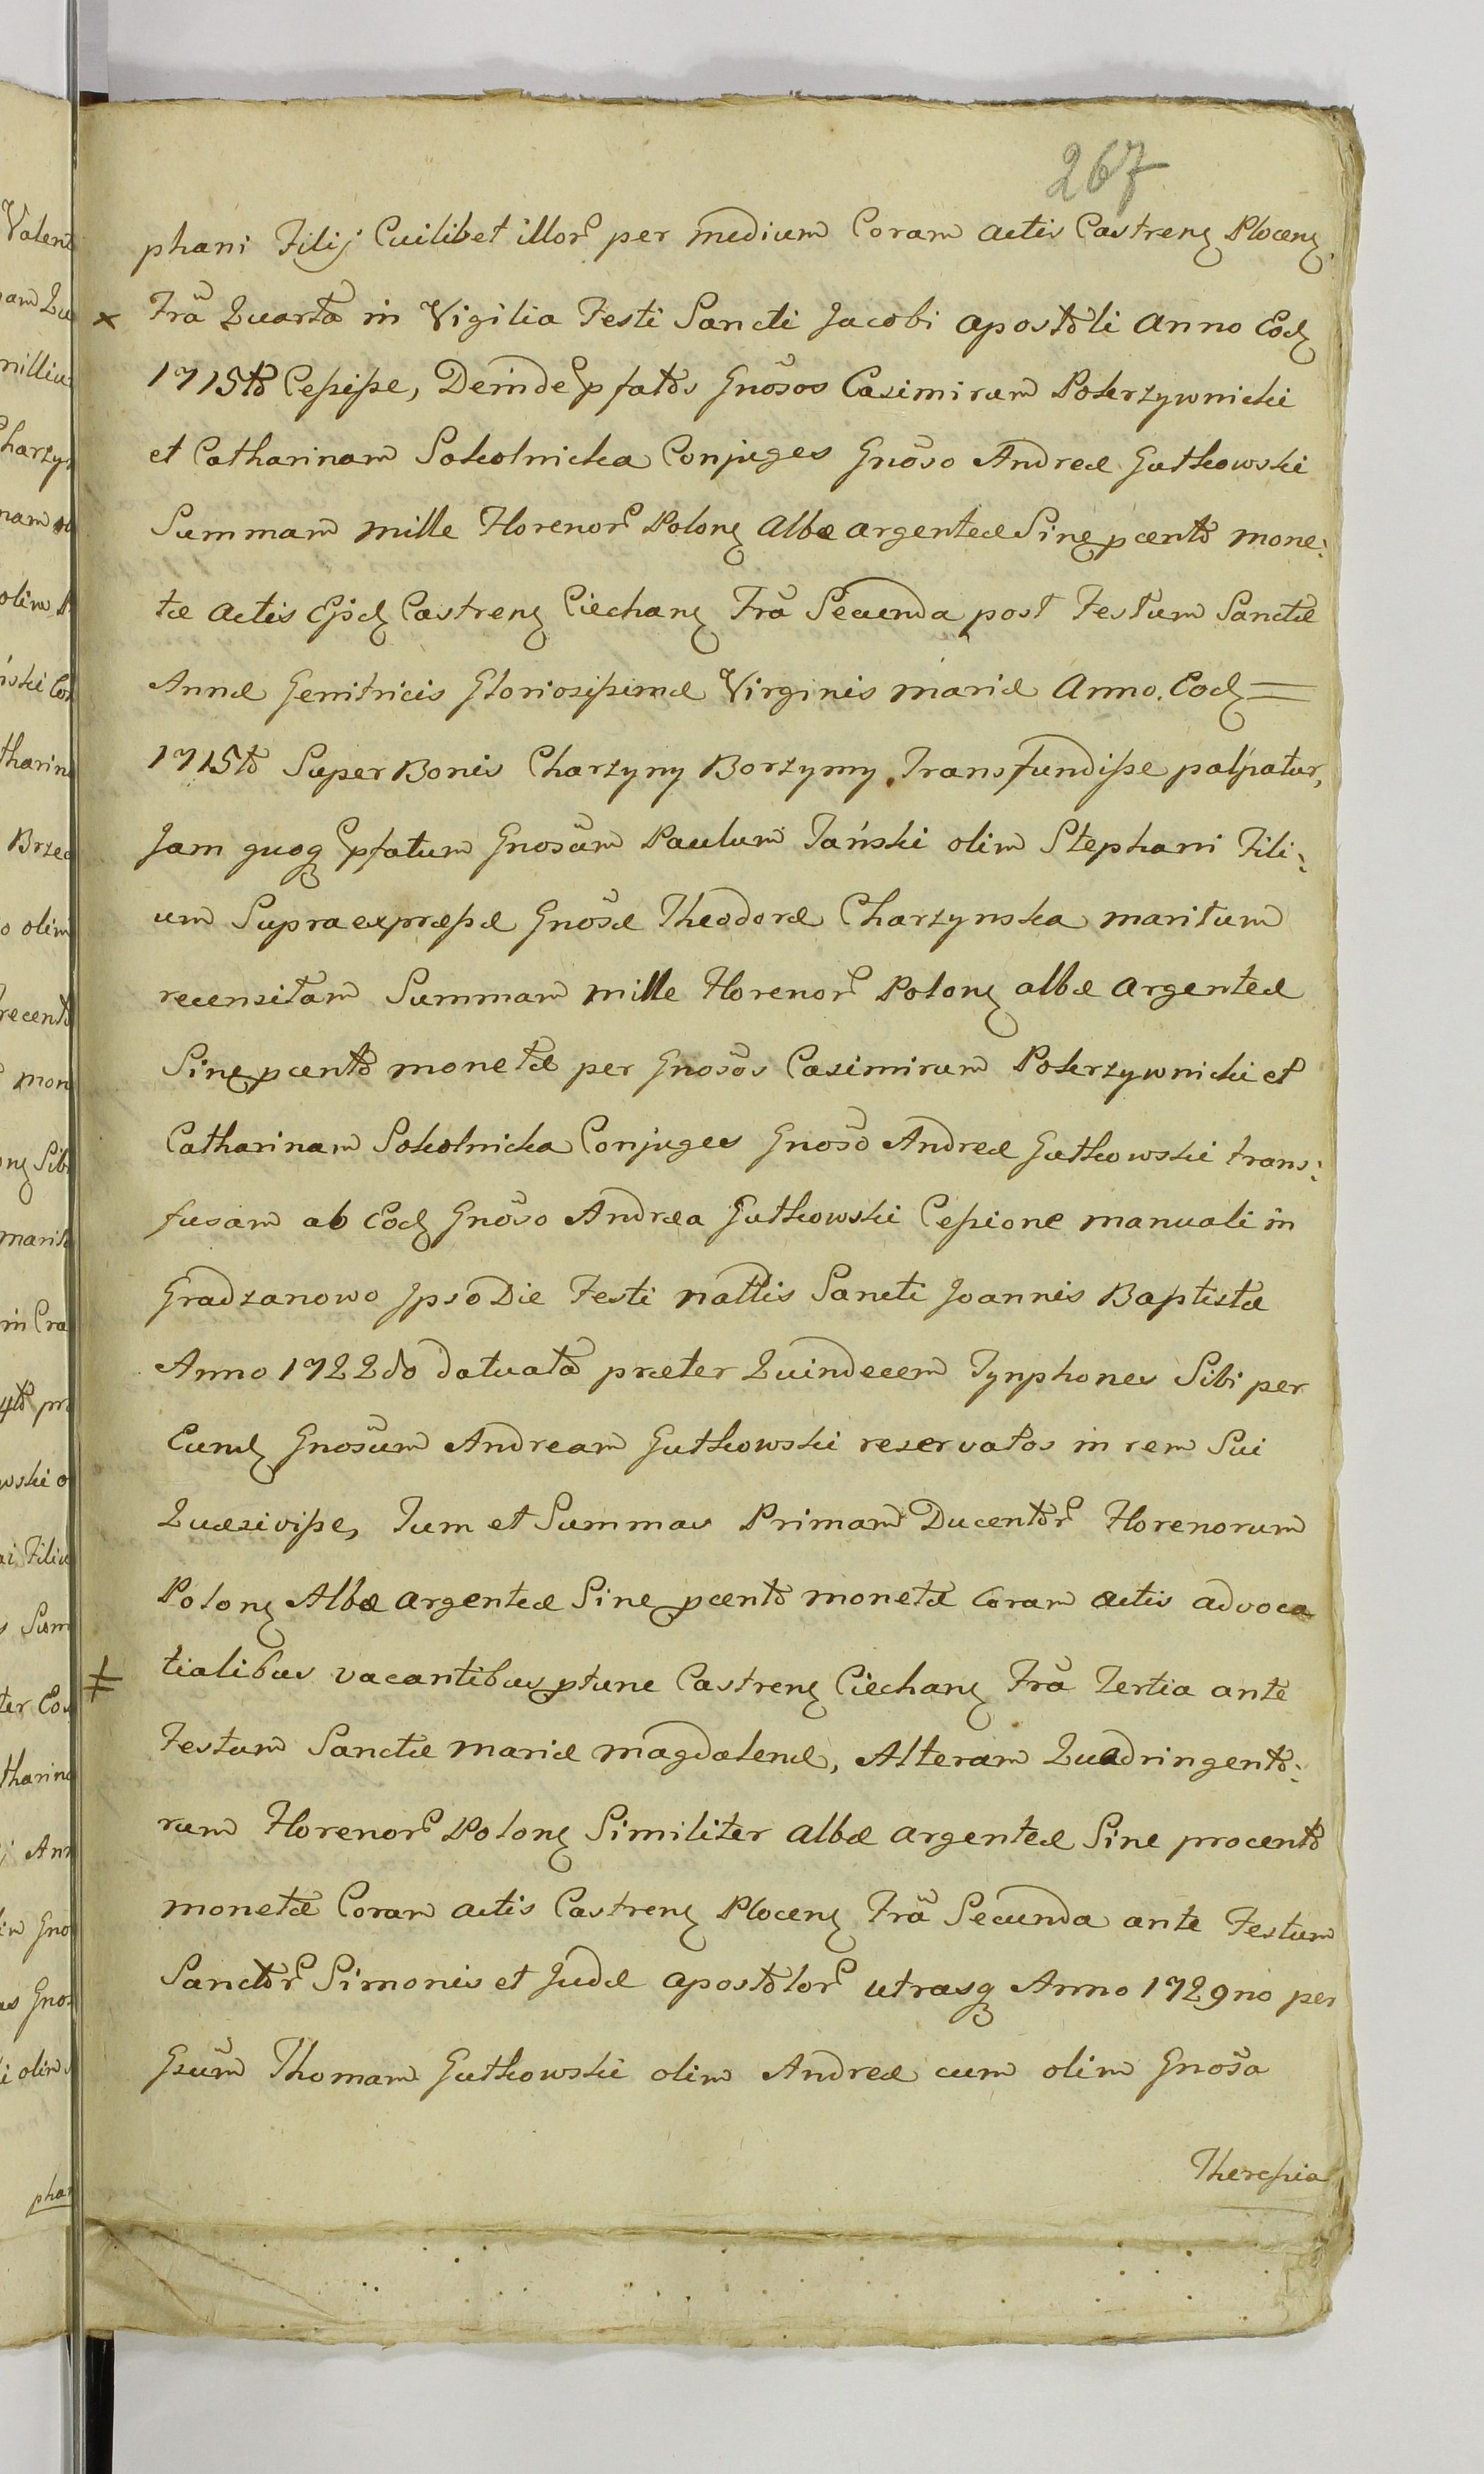 267
phani Filij Cuilibet illor per medium Coram actis Castren Plocen
x Fra Quarta in Vigilia Festi Sancti Jacobi apostoli Anno Eod
1715to Cessisse, Deinde pfatos Gnosos Casimirum Pokrzywnicki
et Catharinam Sokolnicka Conjuges Gnoso Andreæ Gutkowski
Summam mille Florenor Polon Albæ argenteæ Sine pcento mone:
tæ actis Ejsd Castren Ciechan Fra Secunda post Festum Sanctæ
Annæ Genitricis Gloriosissimæ Virginis mariæ Anno Eod =
1715to Super Bonis Charzyny Borzymy Transfundisse
Jam quoq pfatum Gnosum Paulum Tański olim Stephani Fili:
um Supraexpræssæ Gnosæ Theodoræ Charzynska maritum
recensitam Summam mille Florenor Polon albæ argenteæ
Sine pcento monetæ per Gnosos Casimirum Pokrzywnicki et
Catharinam Sokolnicka Conjuges Gnoso Andreæ Gutkowski trans:
fusam ab Eod Gnoso Andrea Gutkowski Cessione manuali in
Gradzanowo Ipso Die Festi nattis Sancti Joannis Baptistæ
Anno 1722do datuata præter Quindecem Tynphones Sibi per
Eund Gnosum Andream Gutkowski reservatos in rem Sui
Quæsivisse, Tum et Summas Primam Ducentor Florenorum
Polon Albæ argenteæ Sine pcento monetæ Coram actis advoca
‡ tialibus vacantibus ptunc Castren Ciechan Fra Tertia ante
Festum Sanctæ mariæ magdalenæ, Alteram Quadringento:
rum Florenor Polon Similiter albæ argenteæ Sine procento
monetæ Coram actis Castren Plocen Fra Secunda ante Festum
Sanctor Simonis et Judæ apostolor utrasq Anno 1729no per
Gsum Thomam Gutkowski olim Andreæ cum olim Gnosa
Theressia